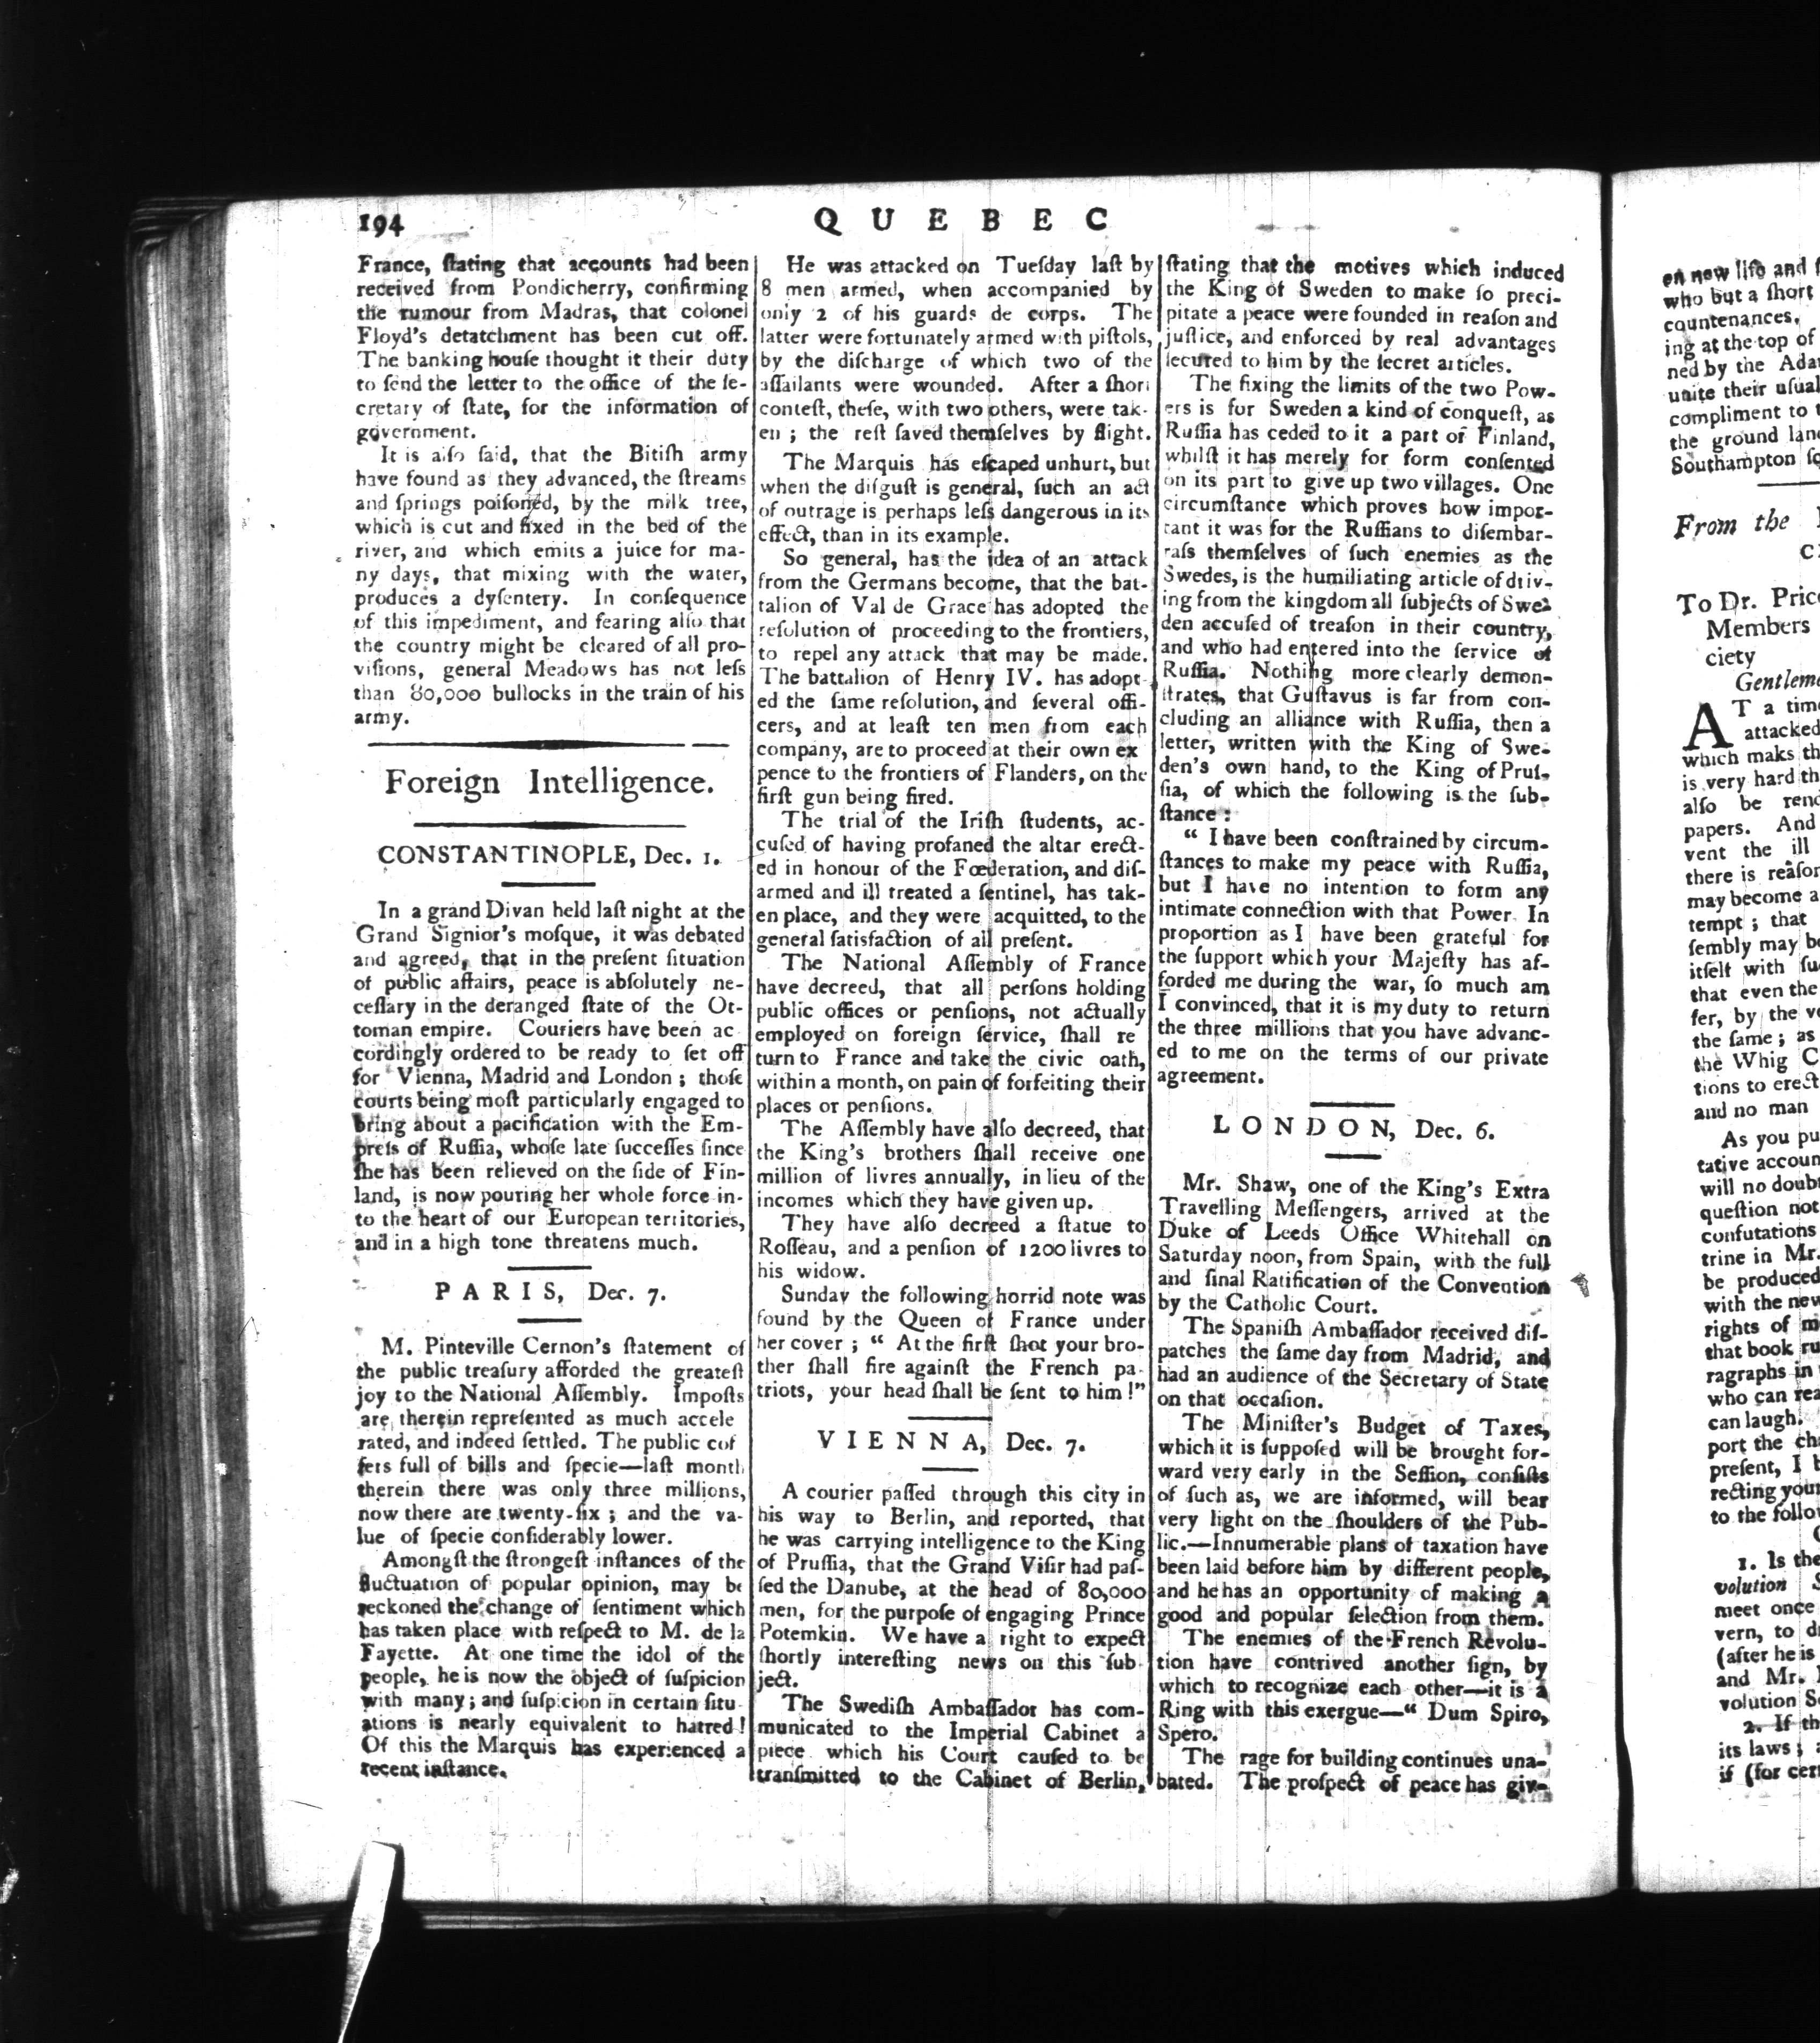 194
QUEBEC
France, ſtating that accounts had been
received from Pondicherry, confirming
the rumour from Madras, that colonel
Floyd's detatchment has been cut off.
The banking houſe thought it their duty
to ſend the letter to the office of the ſe-
cretary of ſtate, for the information of
government.
It is alſo ſaid, that the Bitiſh army
have found as they advanced, the ſtreams
and ſprings poiſoned, by the milk tree,
which is cut and fixed in the bed of the
river, and which emits a juice for ma-
ny days, that mixing with the water,
produces a dyſentery. In conſequence
of this impediment, and fearing alſo that
the country might be cleared of all pro-
viſions, general Meadows has not leſs
than 80,000 bullocks in the train of his
army.
Foreign Intelligence.
CONSTANTINOPLE, Dec. 1.
In a grand Divan held laſt night at the
Grand Signior's moſque, it was debated
and agreed, that in the preſent ſituation
of public affairs, peace is abſolutely ne-
ceſſary in the deranged ſtate of the Ot-
toman empire. Couriers have been ac
cordingly ordered to be ready to ſet off
for Vienna, Madrid and London; thoſe
courts being moſt particularly engaged to
bring about a pacification with the Em-
preſs of Ruſſia, whoſe late ſucceſſes ſince
ſhe has been relieved on the ſide of Fin-
land, is now pouring her whole force in-
to the heart of our European territories,
and in a high tone threatens much.
PARIS, Dec. 7.
M. Pinteville Cernon's ſtatement of
the public treaſury afforded the greateſt
joy to the National Aſſembly. Impoſts
are therein repreſented as much accele
rated, and indeed ſettled. The public cof
fers full of bills and ſpecie—laſt month
therein there was only three millions,
now there are twenty-ſix; and the va-
lue of ſpecie conſiderably lower.
Amongſt the ſtrongeſt inſtances of the
fluctuation of popular opinion, may be
reckoned the change of ſentiment which
has taken place with reſpect to M. de la
Fayette. At one time the idol of the
people, he is now the object of ſuſpicion
with many; and ſuſpicion in certain ſitu
ations is nearly equivalent to hatred!
Of this the Marquis has experienced a
recent inſtance.
He was attacked on Tueſday laſt by
8 men armed, when accompanied by
only 2 of his guards de corps. The
latter were fortunately armed with piſtols,
by the diſcharge of which two of the
aſſailants were wounded. After a ſhort
conteſt, theſe, with two others, were tak-
en; the reſt ſaved themſelves by flight.
The Marquis has eſcaped unhurt, but
when the diſguſt is general, ſuch an act
of outrage is perhaps leſs dangerous in its
effect, than in its example.
So general, has the idea of an attack
from the Germans become, that the bat-
talion of Val de Grace has adopted the
reſolution of proceeding to the frontiers,
to repel any attack that may be made.
The battalion of Henry IV. has adopt
ed the ſame reſolution, and ſeveral offi-
cers, and at leaſt ten men from each
company, are to proceed at their own ex
pence to the frontiers of Flanders, on the
firſt gun being fired.
The trial of the Iriſh ſtudents, ac-
cuſed of having profaned the altar erect-
ed in honour of the Fœderation, and diſ-
armed and ill treated a ſentinel, has tak-
en place, and they were acquitted, to the
general ſatisfaction of all preſent.
The National Aſſembly of France
have decreed, that all perſons holding
public offices or penſions, not actually
employed on foreign ſervice, ſhall re
turn to France and take the civic oath,
within a month, on pain of forfeiting their
places or penſions.
The Aſſembly have alſo decreed, that
the King's brothers ſhall receive one
million of livres annually, in lieu of the
incomes which they have given up.
They have alſo decreed a ſtatue to
Roſſeau, and a penſion of 1200 livres to
his widow.
Sunday the following horrid note was
found by the Queen of France under
her cover; "At the firſt ſhot your bro-
ther ſhall fire againſt the French pa-
triots, your head ſhall be ſent to him!"
VIENNA, Dec. 7.
A courier paſſed through this city in
his way to Berlin, and reported, that
he was carrying intelligence to the King
of Pruſſia, that the Grand Viſir had paſ-
ſed the Danube, at the head of 80,000
men, for the purpoſe of engaging Prince
Potemkin. We have a right to expect
ſhortly intereſting news on this ſub
ject.
The Swediſh Ambaſſador has com-
municated to the Imperial Cabinet a
piece which his Court cauſed to be
tranſmitted to the Cabinet of Berlin,
ſtating that the motives which induced
the King of Sweden to make ſo preci-
pitate a peace were founded in reaſon and
juſtice, and enforced by real advantages
ſecured to him by the ſecret articles.
The fixing the limits of the two Pow-
ers is for Sweden a kind of conqueſt, as
Ruſſia has ceded to it a part of Finland,
whilſt it has merely for form conſented
on its part to give up two villages. One
circumſtance which proves how impor-
tant it was for the Ruſſians to diſembar-
raſs themſelves of ſuch enemies as the
Swedes, is the humiliating article of driv-
ing from the kingdom all ſubjects of Swe-
den accuſed of treaſon in their country,
and who had entered into the ſervice of
Ruſſia. Nothing more clearly demon-
ſtrates, that Guſtavus is far from con-
cluding an alliance with Ruſſia, then a
letter, written with the King of Swe-
den's own hand, to the King of Pruſ-
ſia, of which the following is the ſub-
ſtance:
"I have been conſtrained by circum-
ſtances to make my peace with Ruſſia,
but I have no intention to form any
intimate connection with that Power. In
proportion as I have been grateful for
the ſupport which your Majeſty has af-
forded me during the war, ſo much am
I convinced, that it is my duty to return
the three millions that you have advanc-
ed to me on the terms of our private
agreement.
LONDON, Dec. 6.
Mr. Shaw, one of the King's Extra
Travelling Meſſengers, arrived at the
Duke of Leeds Office Whitehall on
Saturday noon, from Spain, with the full
and final Ratification of the Convention
by the Catholic Court.
The Spaniſh Ambaſſador received diſ-
patches the ſame day from Madrid, and
had an audience of the Secretary of State
on that occaſion.
The Miniſter's Budget of Taxes,
which it is ſuppoſed will be brought for-
ward very early in the Seſſion, conſiſts
of ſuch as, we are informed, will bear
very light on the ſhoulders of the Pub-
lic.—Innumerable plans of taxation have
been laid before him by different people,
and he has an opportunity of making a
good and popular ſelection from them.
The enemies of the French Revolu-
tion have contrived another ſign, by
which to recognize each other—it is a
Ring with this exergue—"Dum Spiro,
Spero.
The rage for building continues una-
bated. The proſpect of peace has giv-
en new life and
who but a ſhort
countenances.
ing at the top of
ned by the Ada
unite their uſual
compliment to
the ground lan
Southampton
From the
To Dr. Price
Members
ciety
Gentleme
AT a tim
attacked
which maks th
is very hard th
alſo be rend
papers. And
vent the ill
there is reaſon
may become a
tempt; that
ſembly may b
itſelf with ſu
that even the
fer, by the v
the ſame; as
the Whig C
tions to erect
and no man
As you pu
tative accoun
will no doubt
queſtion not
confutations
trine in Mr.
be produced
with the new
rights of m
that book ru
ragraphs in
who can rea
can laugh.
port the ch
preſent, I b
recting your
to the follo
1. Is the
volution S
meet once
vern, to d
(after he is
and Mr.
volution S
2. If th
its laws; a
if (for cert